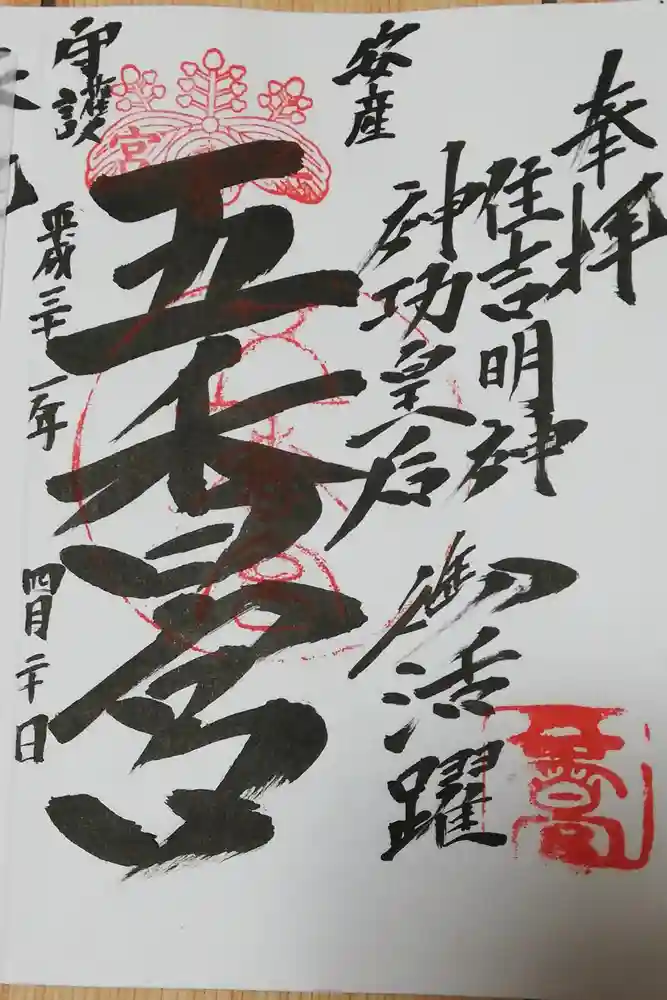 奉拝
住吉明神
神功皇后
御活躍
安産
五香宮
守護
平成三十一年四月二十日
宮